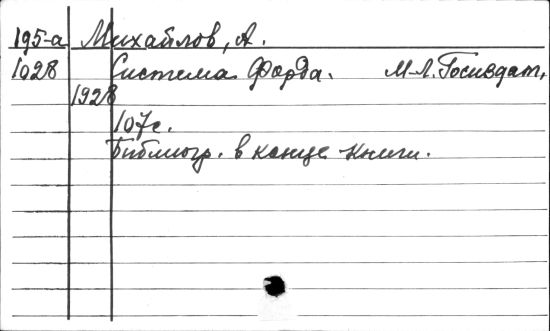 195-а Михайлов, А.
1028 Система Форда. М-Л. Госиздат,
1928
107с.
Библиогр. в конце книги.